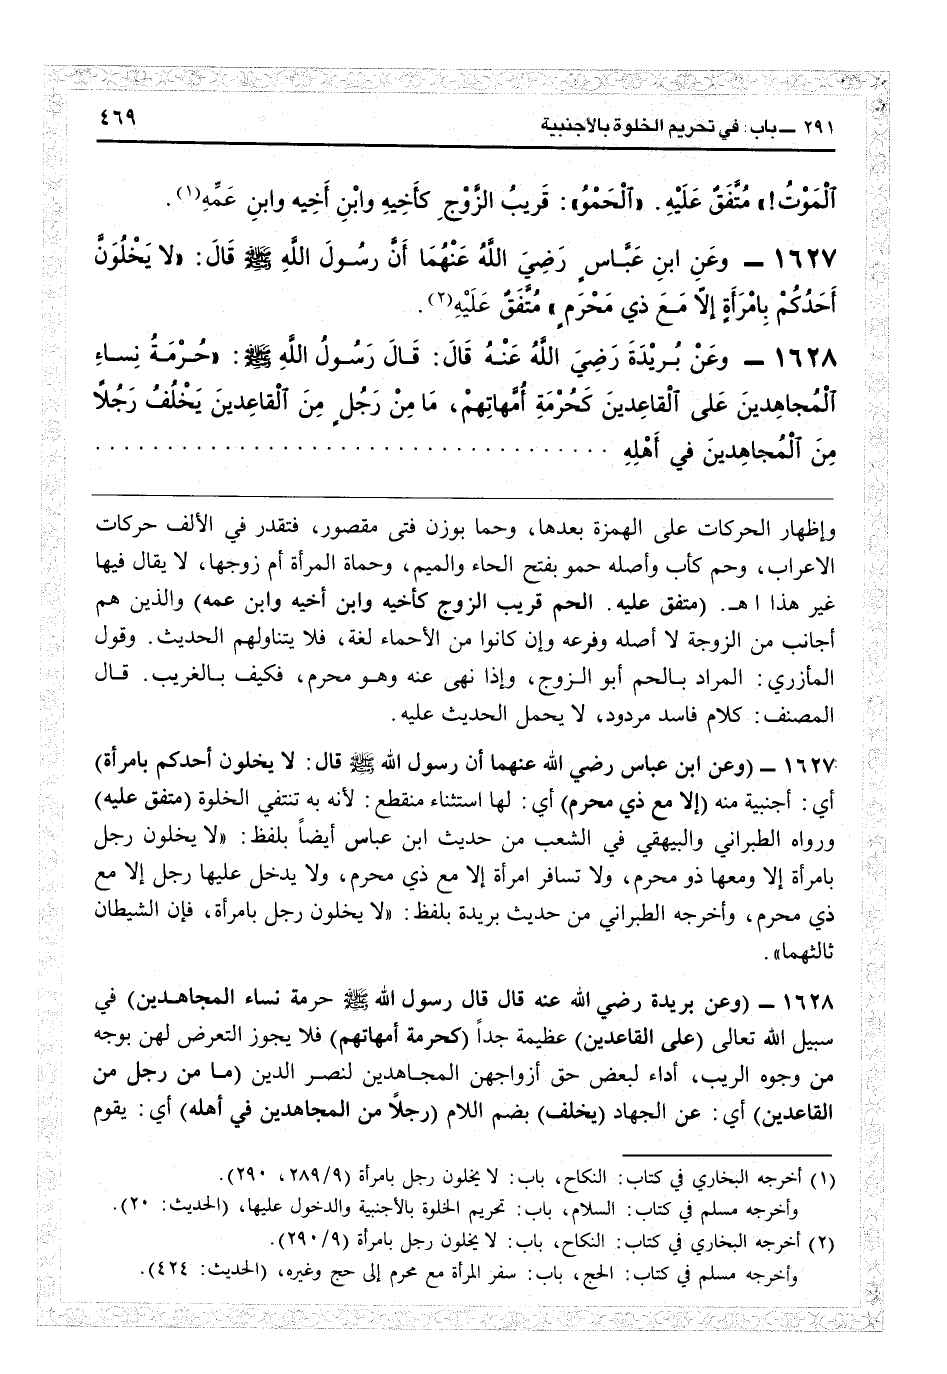 ٢٩١ ــ باب: في تحريم الخلوة بالأجنبية
٤٦٩
ٱلْمَوْتُ!» مُتَّفَقٌ عَلَيْهِ. «ٱلْحَمْوُ»: قَرِيبُ الزَّوْجِ كَأَخِيهِ وابْنِ أَخِيه وابنِ عَمِّهِ(١).
١٦٢٧ ــ وعَنِ ابنِ عَبَّاسٍ رَضِيَ اللَّهُ عَنْهُمَا أَنَّ رسُولَ اللَّهِ ﷺ قَالَ: «لا يَخْلُوَنَّ
أَحَدُكُمْ بِامْرَأَةٍ إلاَّ مَعَ ذي مَحْرَمٍ» مُتَّفَقٌ عَلَيْهِ(٢).
١٦٢٨ ــ وعَنْ بُرَيْدَةَ رَضِيَ اللَّهُ عَنْهُ قَالَ: قَالَ رَسُولُ اللَّهِ ﷺ: «حُرْمَةُ نِساءِ
ٱلْمُجاهِدينَ عَلى ٱلْقاعِدينَ كَحُرْمَةِ أُمَّهاتِهِمْ، مَا مِنْ رَجُلٍ مِنَ ٱلْقاعِدينَ يَخْلُفُ رَجُلاً
مِنَ ٱلْمُجاهِدينَ في أَهْلِهِ . . . . . . . . . . . . . . . . . . . . . . . . . . . . . . . . . .
وإظهار الحركات على الهمزة بعدها، وحما بوزن فتى مقصور، فتقدر في الألف حركات
الاعراب، وحم كأب وأصله حمو بفتح الحاء والميم، وحماة المرأة أم زوجها، لا يقال فيها
غير هذا ا هـ. (متفق عليه. الحم قريب الزوج كأخيه وابن أخيه وابن عمه) والذين هم
أجانب من الزوجة لا أصله وفرعه وإن كانوا من الأحماء لغة، فلا يتناولهم الحديث. وقول
المأزري: المراد بالحم أبو الزوج، وإذا نهى عنه وهو محرم، فكيف بالغريب. قال
المصنف: كلام فاسد مردود، لا يحمل الحديث عليه.
١٦٢٧ ــ (وعن ابن عباس رضي الله عنهما أن رسول الله ﷺ قال: لا يخلون أحدكم بامرأة)
أي: أجنبية منه (إلا مع ذي محرم) أي: لها استثناء منقطع: لأنه به تنتفي الخلوة (متفق عليه)
ورواه الطبراني والبيهقي في الشعب من حديث ابن عباس أيضاً بلفظ: «لا يخلون رجل
بامرأة إلا ومعها ذو محرم، ولا تسافر امرأة إلا مع ذي محرم، ولا يدخل عليها رجل إلا مع
ذي محرم، وأخرجه الطبراني من حديث بريدة بلفظ: «لا يخلون رجل بامرأة، فإن الشيطان
ثالثهما».
١٦٢٨ ــ (وعن بريدة رضي الله عنه قال قال رسول الله ﷺ حرمة نساء المجاهدين) في
سبيل الله تعالى (على القاعدين) عظيمة جداً (كحرمة أمهاتهم) فلا يجوز التعرض لهن بوجه
من وجوه الريب، أداء لبعض حق أزواجهن المجاهدين لنصر الدين (ما من رجل من
القاعدين) أي: عن الجهاد (يخلف) بضم اللام (رجلاً من المجاهدين في أهله) أي: يقوم
(١) أخرجه البخاري في كتاب: النكاح، باب: لا يخلون رجل بامرأة (٢٨٩/٩، ٢٩٠).
وأخرجه مسلم في كتاب: السلام، باب: تحريم الخلوة بالأجنبية والدخول عليها، (الحديث: ٢٠).
(٢) أخرجه البخاري في كتاب: النكاح، باب: لا يخلون رجل بامرأة (٢٩٠/٩).
وأخرجه مسلم في كتاب: الحج، باب: سفر المرأة مع محرم إلى حج وغيره، (الحديث: ٤٢٤).